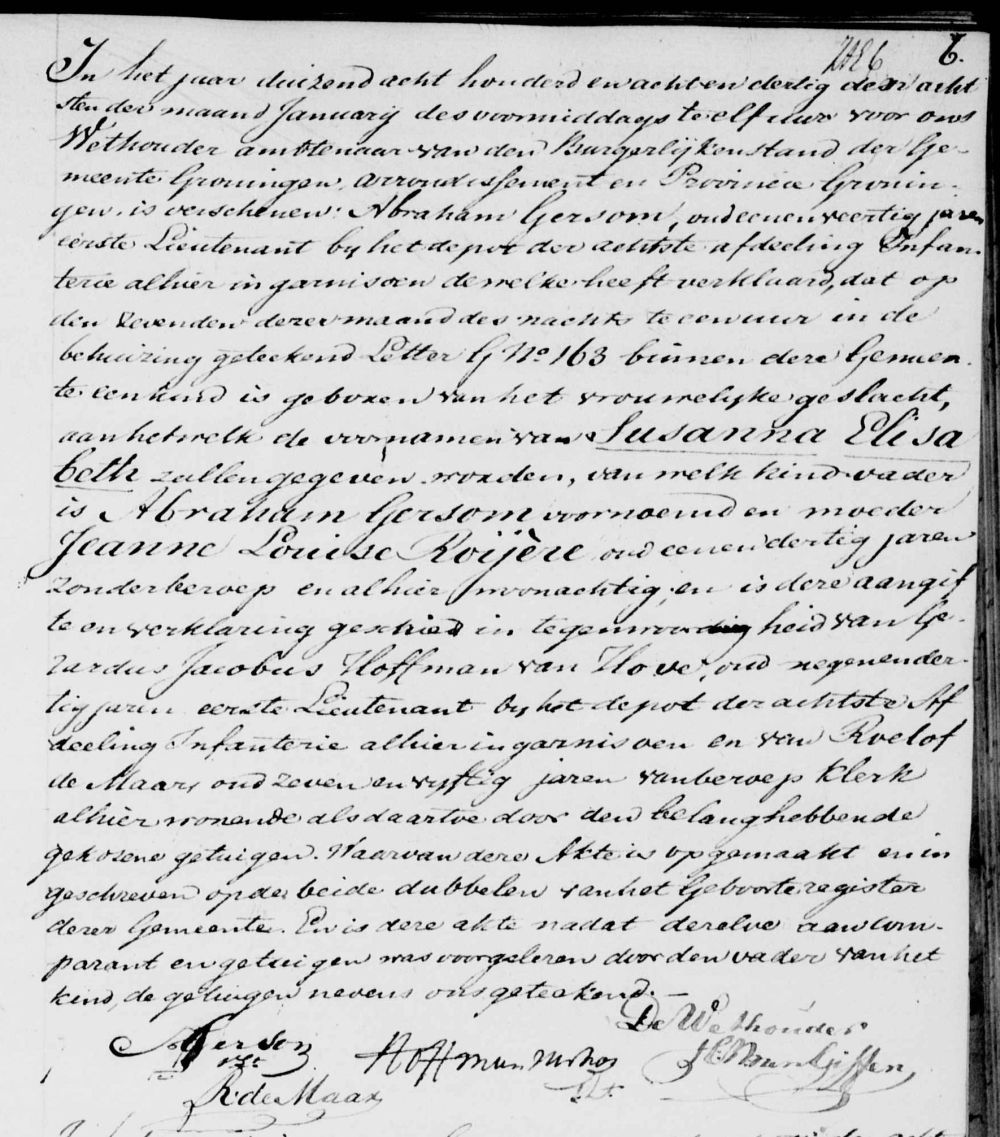 6.
In het jaar duizend acht honderd en acht en dertig den acht
sten der maand January des voormiddags te elf uur voor ons
Wethouder ambtenaar van den Burgerlijken stand der Ge-
meente Groningen, arrondissement en Provincie Gronin-
gen, is verschenen: Abraham Gersom, oud eenenveertig jaren
eerste Lieutenant by het depot der achtste afdeeling Infan-
terie alhier in garnisoen dewelke heeft verklaard, dat op
den zevenden dezer maand des nachts te een uur in de
behuizing geteekend Letter G No 163 binnen deze Gemeen-
te een kind is geboren van het vrouwelyke geslacht,
aan hetwelk de voornamen van Susanna Elisa
beth zullen gegeven worden, van welk kind vader
is Abraham Gersom voornoemd en moeder
Jeanne Louise Roijère oud eenendertig jaren
zonder beroep en alhier woonachtig; en is deze aangif
te en verklaring geschied in tegenwoordigheid van Ge-
rardus Jacobus Hoffman van Hove, oud negenender-
tig jaren eerste Lieutenant by het depot der achtste Af
deeling Infanterie alhier in garnisoen en van Roelof
de Maar, oud zeven en vyftig jaren van beroep Klerk
alhier wonende als daartoe door den belanghebbende
gekozene getuigen. Waarvan deze Akte is opgemaakt en in
geschreven op de beide dubbelen van het Geboorteregister
dezer Gemeente. En is deze akte nadat dezelve aan com-
parant en getuigen was voorgelezen door den vader van het
kind, de getuigen nevens ons geteekend. —
De Wethouder
AGersom
Hoffman
R: de Maar